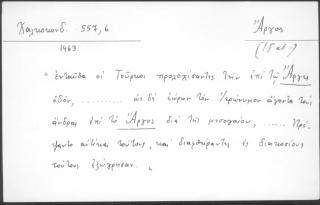 Χαλκοκονδ. 557,6
Ἄργος
1463
(15 αἰ.)
" ἐνταῦθα οἱ Τοῦρκοι προσχόντες τὴν ἐπὶ τῷ Ἄργει
ὁδόν, .......... ὡς δὲ εὗρον τὸν Ἱερώνυμον ἄγοντα τοὺς
ἄνδρας ἐπὶ τὸ Ἄργος διὰ τῆς μεσογαίου, ....
αὐτίκα τούτους, καὶ διαφθείραντες ἐς διακοσίους
τούτους ἐζώγρησαν. "